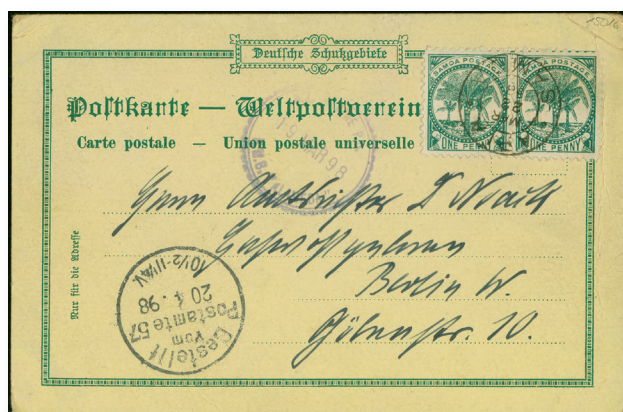 Deutsche Schutzgebiete
Postkarte — Weltpostverein
Carte postale — Union postale universelle
SAMOA POSTAGE
ONE PENNY
SAMOA POSTAGE
ONE PENNY
19 MAR 98
Nur für die Adresse
Herrn Amtsrichter D
Berlin W.
10.
Bestellt
vom
Postamte 57
20 4. 98
10½-11½V.